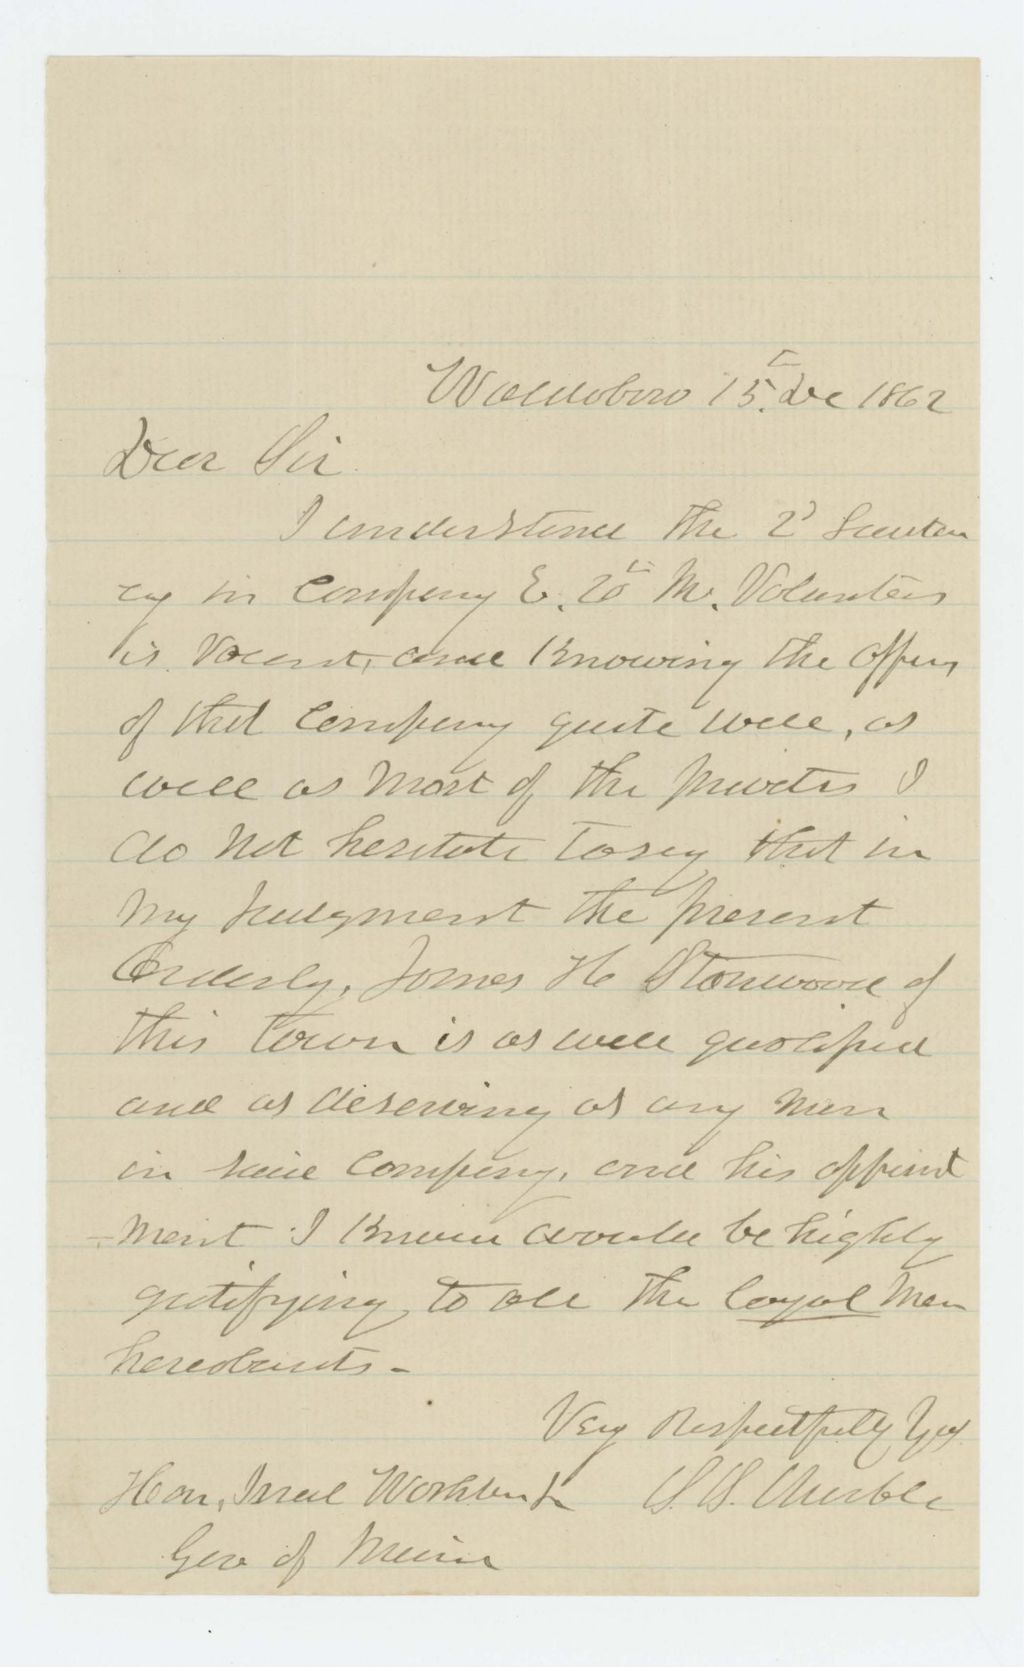 Waldoboro 15th Dec 1862
Dear Sir
I understand the 2d Lieuten
cy in Company E. 20th Me. Volunteers
is Vacant, and Knowing the officers
of that Company quite well, as
well as Most of the privates I
do Not hesitate to say that in
My Judgment the present
Orderly, James H Stanwood of
this Town is as well qualified
and as deserving as any Man
in said Company, and his appoint
-ment I Know would be highly
gratifying, to all the loyal Men
hereabouts -
Very Respectfully Yrs
Hon, Israel Washburn Jr S. S. Marble
Gov of Maine